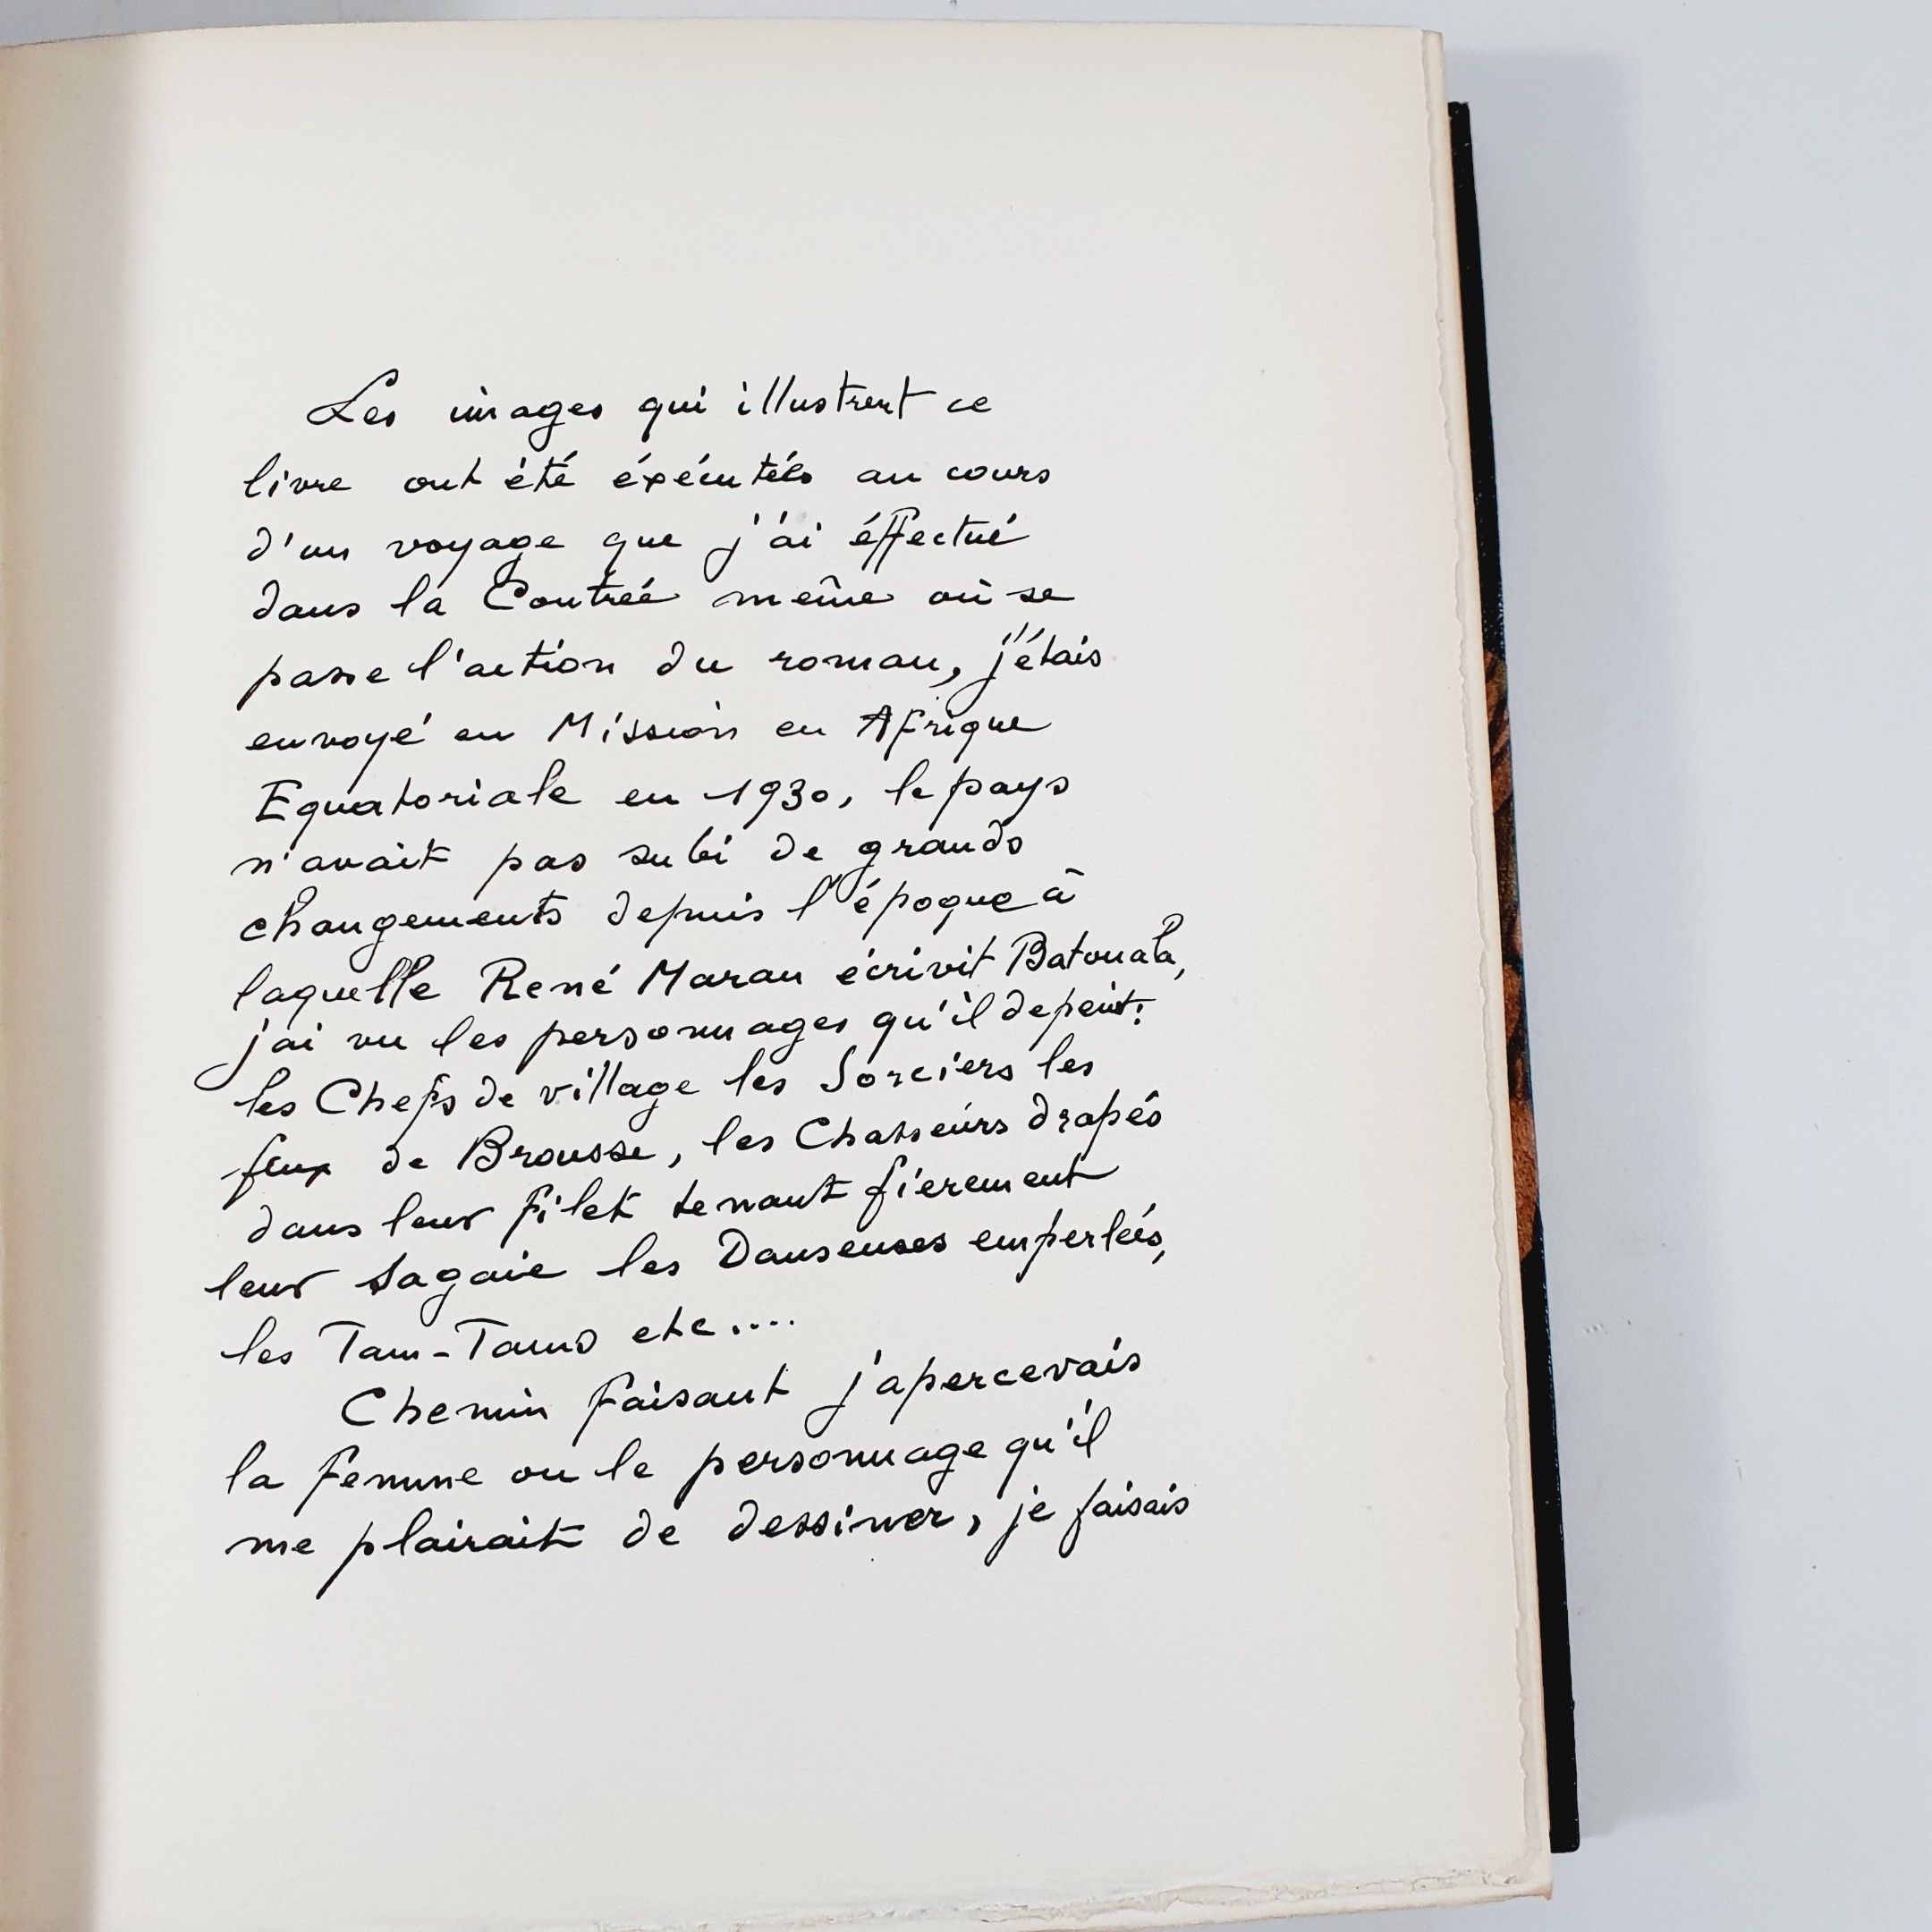 Les images qui illustrent ce
livre ont été éxécutées au cours
d'un voyage que j'ai éffectué
dans la Contrée même où se
passe l'action du roman, j'étais
envoyé en Mission en Afrique
Equatoriale en 1930, le pays
n'avait pas subi de grands
changements depuis l'époque à
laquelle René Maran écrivit Batouala,
j'ai vu les personnages qu'il depeint:
les Chefs de village les Sorciers les
feux de Brousse, les Chasseurs drapés
dans leur filet tenant fierement
leur sagaie les Danseuses emperlées,
les Tam-Tams etc....
Chemin faisant j'apercevais
la femme ou le personnage qu'il
me plairait de dessiner, je faisais